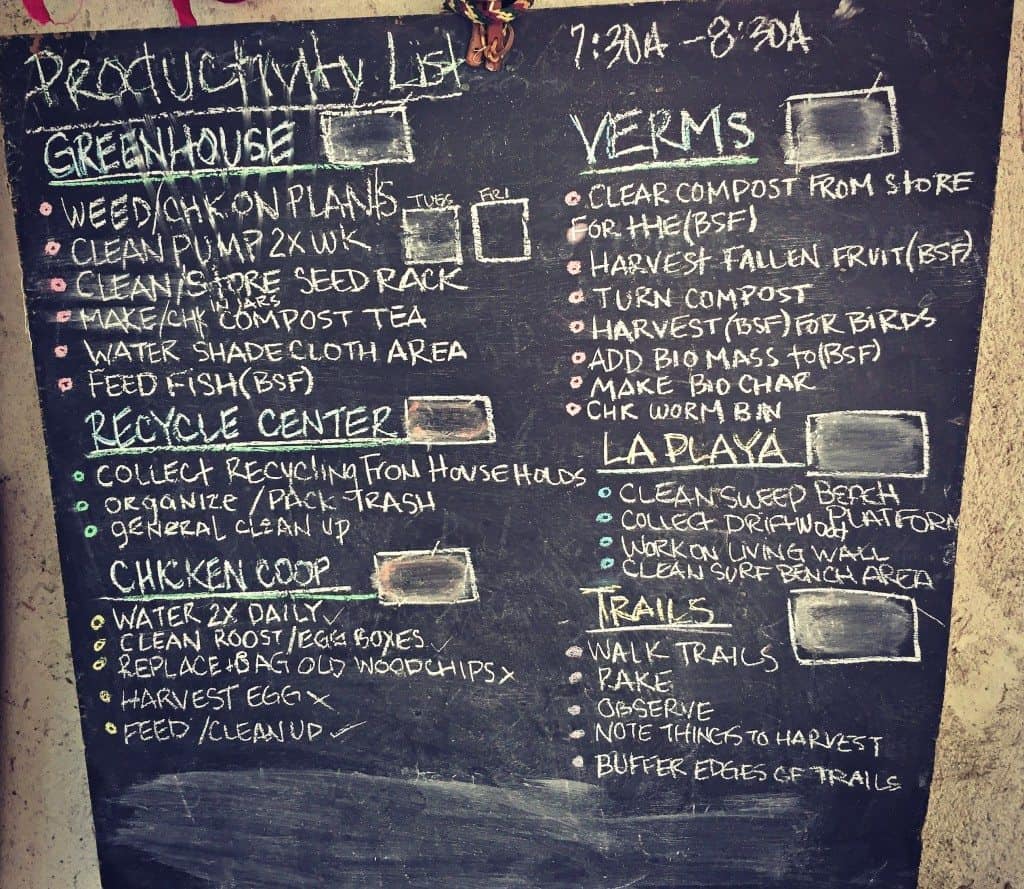 Productivity List
7:30A - 8:30A
GREENHOUSE
WEED/CHK ON PLANTS
TUES FRI
CLEAN PUMP 2X WK
CLEAN/STORE SEED RACK
IN JARS
MAKE/CHK COMPOST TEA
WATER SHADE CLOTH AREA
FEED FISH (BSF)
RECYCLE CENTER
COLLECT RECYCLING FROM HOUSEHOLDS
ORGANIZE / PACK TRASH
GENERAL CLEAN UP
CHICKEN COOP
WATER 2X DAILY ✓
CLEAN ROOST/EGG BOXES ✓
REPLACE + BAG OLD WOODCHIPS x
HARVEST EGG x
FEED /CLEAN UP ✓
VERMS
CLEAR COMPOST FROM STORE
FOR THE (BSF)
HARVEST FALLEN FRUIT (BSF)
TURN COMPOST
HARVEST (BSF) FOR BIRDS
ADD BIO MASS to (BSF)
MAKE BIO CHAR
CHK WORM BIN
LA PLAYA
CLEAN SWEEP BENCH
PLATFORM
COLLECT DRIFTWOOD
WORK ON LIVING WALL
CLEAN SURF BENCH AREA
TRAILS
WALK TRAILS
RAKE
OBSERVE
NOTE THINGS TO HARVEST
BUFFER EDGES OF TRAILS